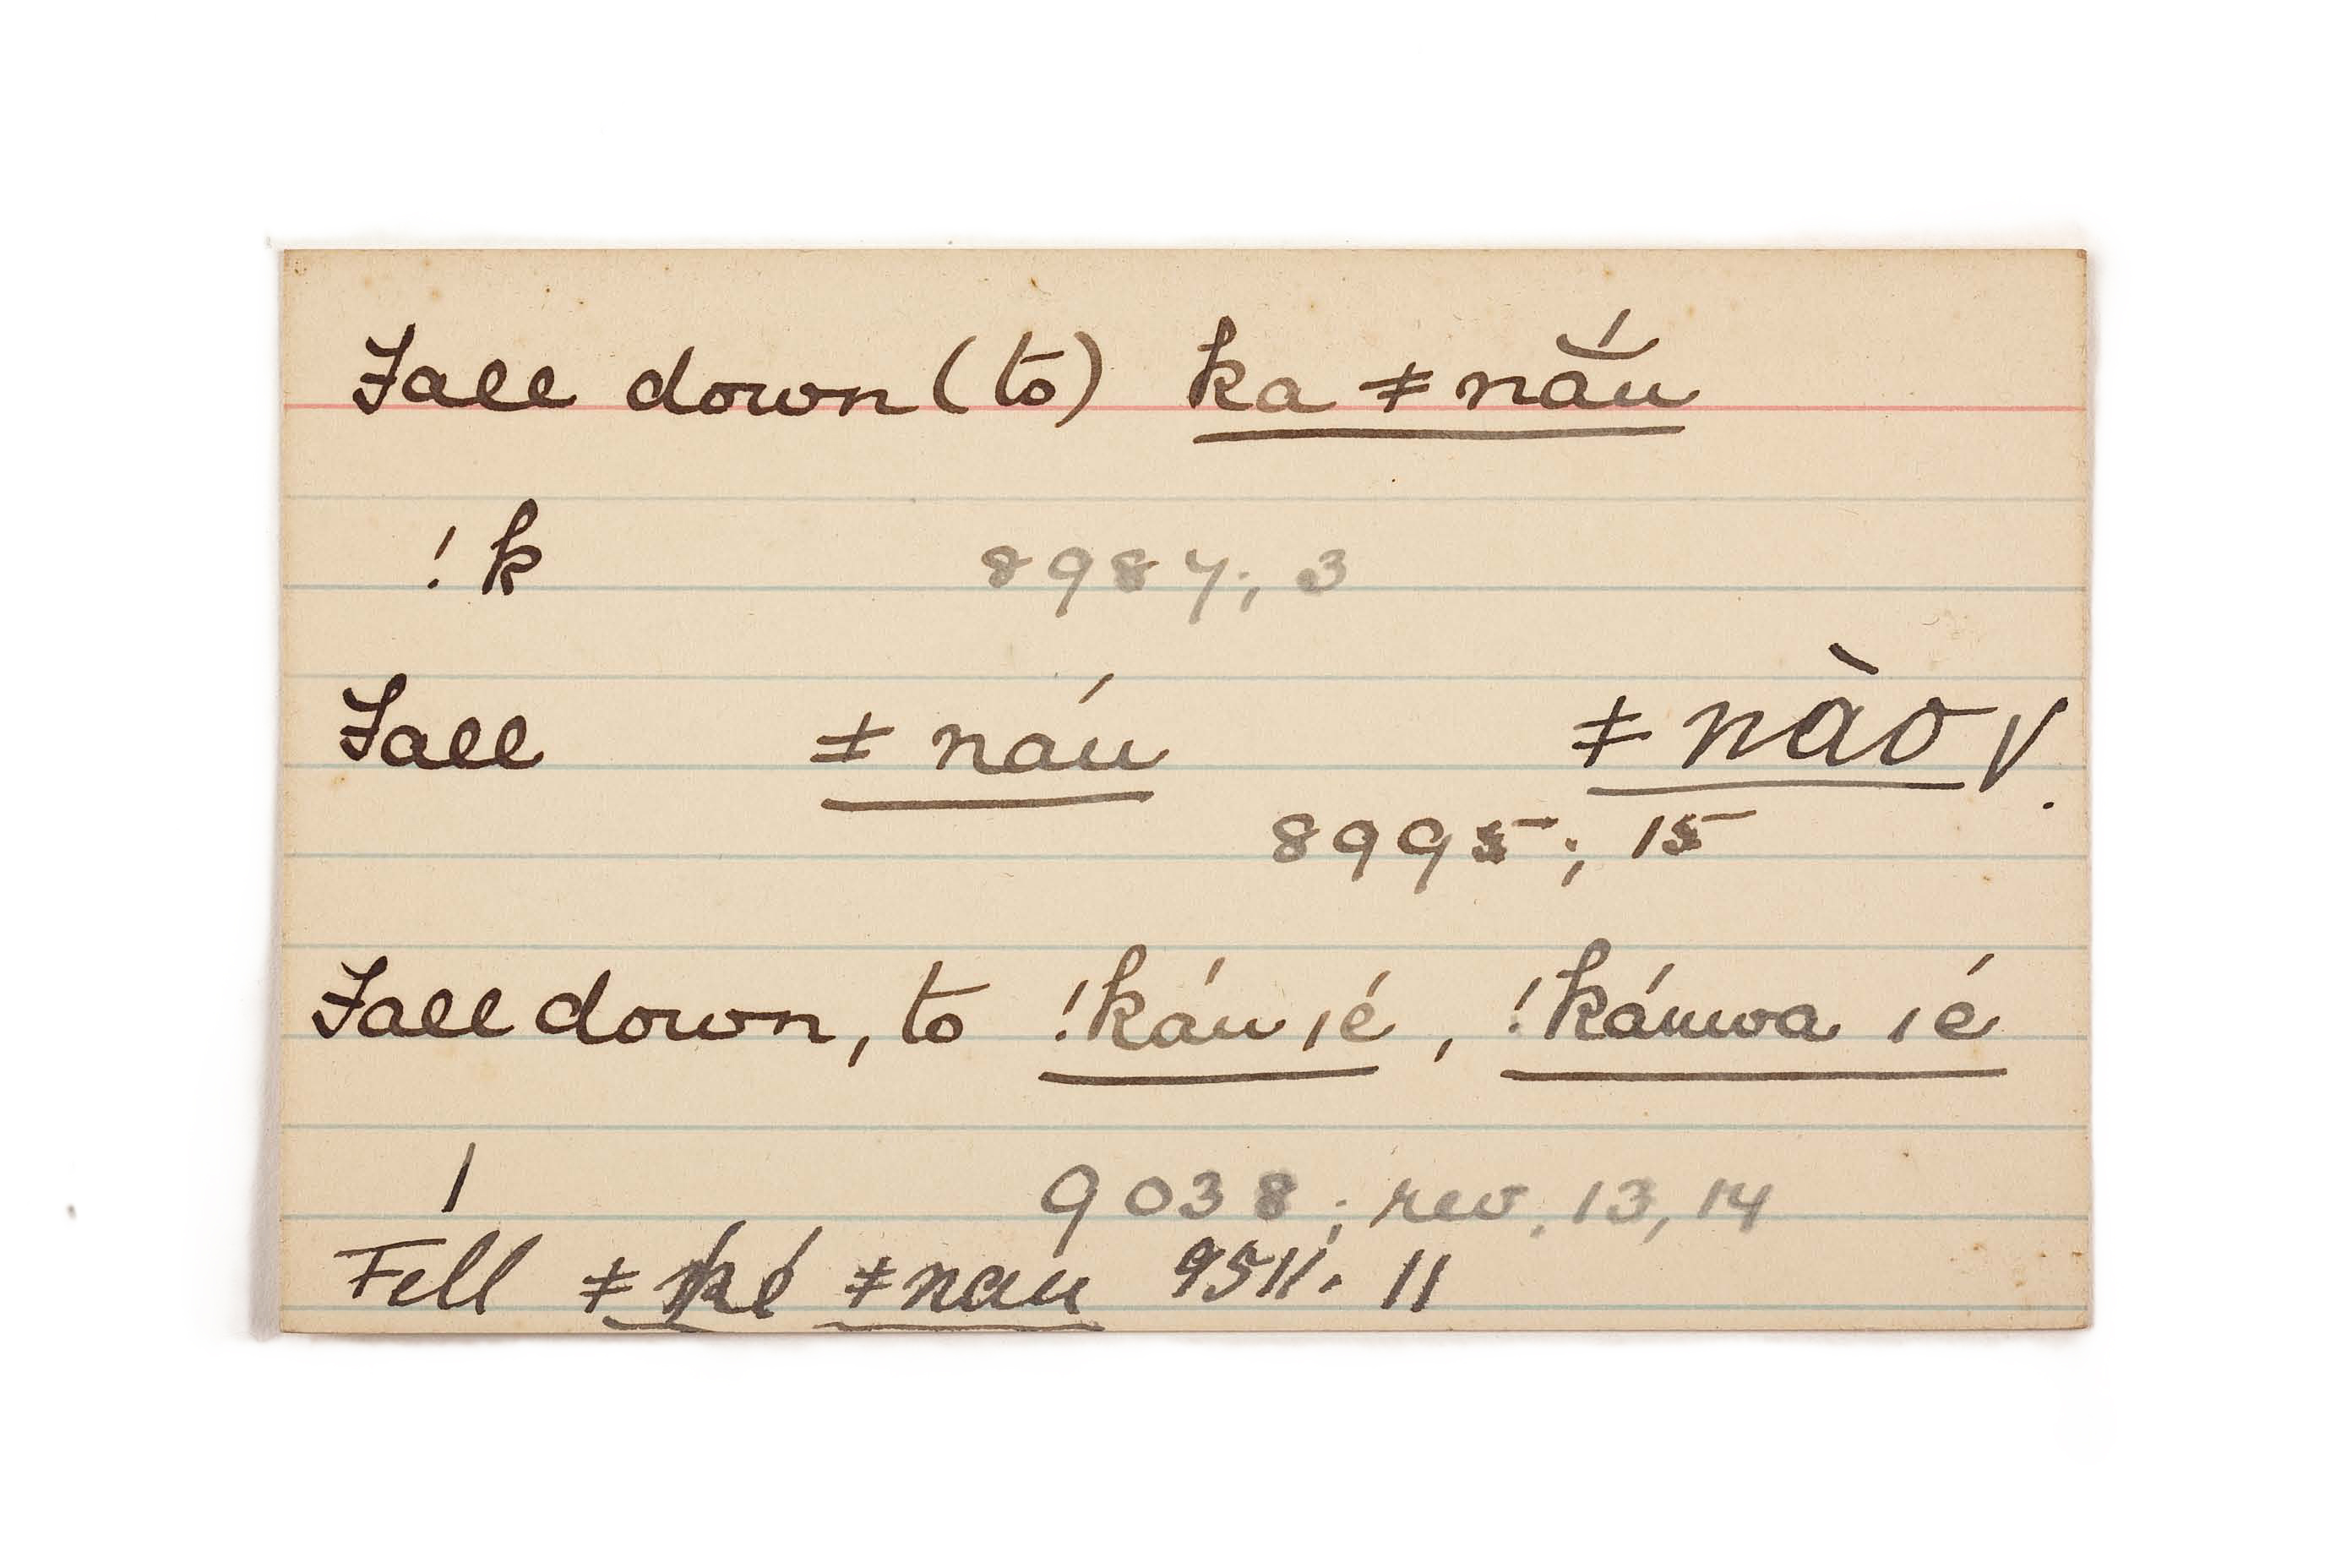 Fall down (to) ka ǂnắu
!k 8987; 3
Fall ǂnáu ǂnào V.
8995; 15
Fall down, to !káu ıé, !káuwa ıé
| 9038; rev. 13, 14
Fell ǂ ǂnau 9511. 11